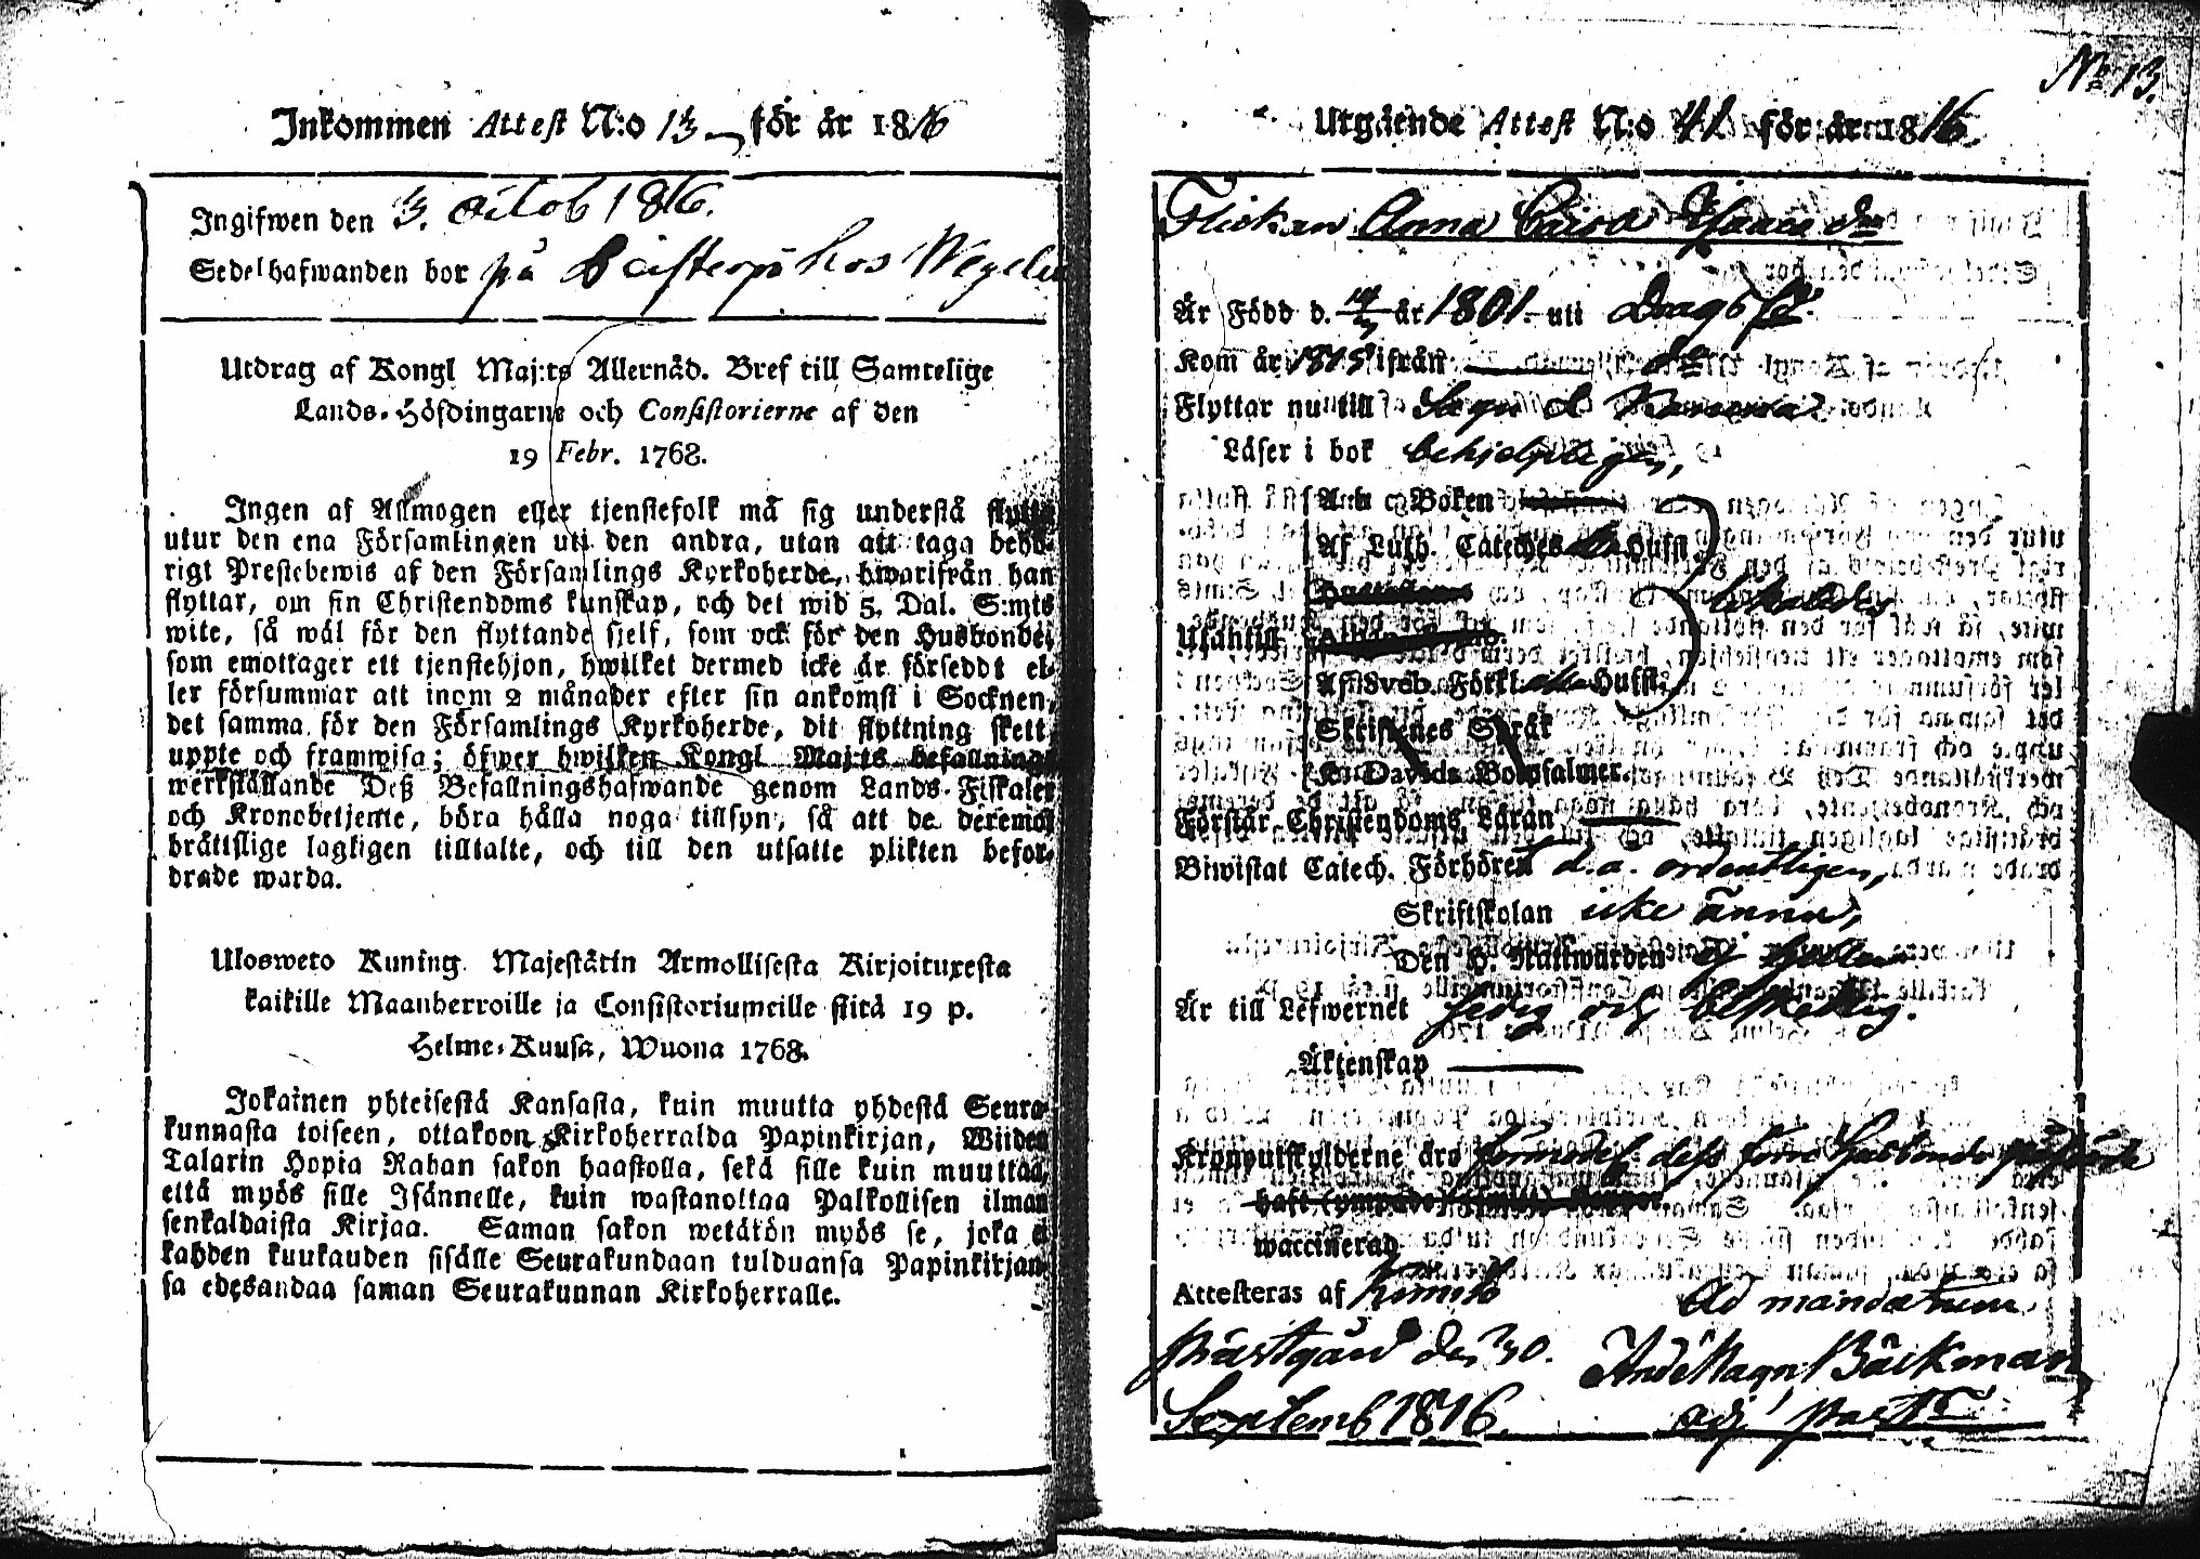 Inkommen Attest N:o 13 för år 1816
Ingifwen den 3. Octob 1816.
Sedelhafwanden bor på hos
Utdrag af Kongl Maj:ts Allernåd. Bref till Samtelige
Lands-Höfdingarne och Consistorierne af den
19 Febr. 1768.
Ingen af Allmogen eller tjenstefolk må sig understå flytta
utur den ena Församlingen uti den andra, utan att taga behö-
rigt Prestebewis af den Församlings Kyrkoherde, hwarifrån han
flyttar, om sin Christendoms kunskap, och det wid 5. Dal. S:mts
wite, så wäl för den flyttande sjelf, som ock för den Husbonde,
som emottager ett tjenstehjon, hwilket dermed icke är förseddt el-
ler försummar att inom 2 månader efter sin ankomst i Socknen,
det samma för den Församlings Kyrkoherde, dit flyttning skett,
uppte och framwisa; öfwer hwilken Kongl Maj:ts befallnings
werkställande Deß Befallningshafwande genom Lands-Fiskaler
och Kronobetjente, böra hålla noga tillsyn, så att de deremot
bråttslige lagligen tilltalte, och till den utsatte plikten befor-
drade warda.
Ulosweto Kuning. Majestätin Armollisesta Kirjoituxesta
kaikille Maanherroille ja Consistoriumeille siitä 19 p.
Helme-Kuusa, Wuona 1768.
Jokainen yhteisestä Kansasta, kuin muutta yhdestä Seura-
kunnasta toiseen, ottakoon Kirkoherralda Papinkirjan, Wiiden
Talarin Hopia Rahan sakon haastolla, sekä sille kuin muuttaa,
että myös sille Isännelle, kuin wastanottaa Palkollisen ilman
senkaldaista Kirjaa. Saman sakon wetäkön myös se, joka ei
kahden kuukauden sisälle Seurakundaan tulduansa Papinkirjan-
sa edesandaa saman Seurakunnan Kirkoherralle.
Nr 13.
Utgående Attest N:o 41 för år 1816
Flickan Anna Caisa Isaacsdr
Är Född d. år 1801 uti Dragsf.
Kom år 1815 ifrån
Flyttar nu till Sagu
Läser i bok behjelpligen,
Ann c Boken
Af Luth. Cateches Hufst.
Utantill
Af Sveb. Förkl. Hufst.
Skriftenes Språk
K. Davids Botpsalmer.
Förstår Christendoms Läran
Biwistat Catech. Förhören d.a. ordentligen,
Skriftskolan icke ännu,
Den H. Nattwarden ej heller
Är till Lefwernet sedig och beskedlig.
Äktenskap
Kronoutskylderne äro dess förre Husbonde
waccinerad
Attesteras af Kimito
Prästgård den 30.
Septemb 1816.
Ad mandatum
And Magn Bäckman
adj. past